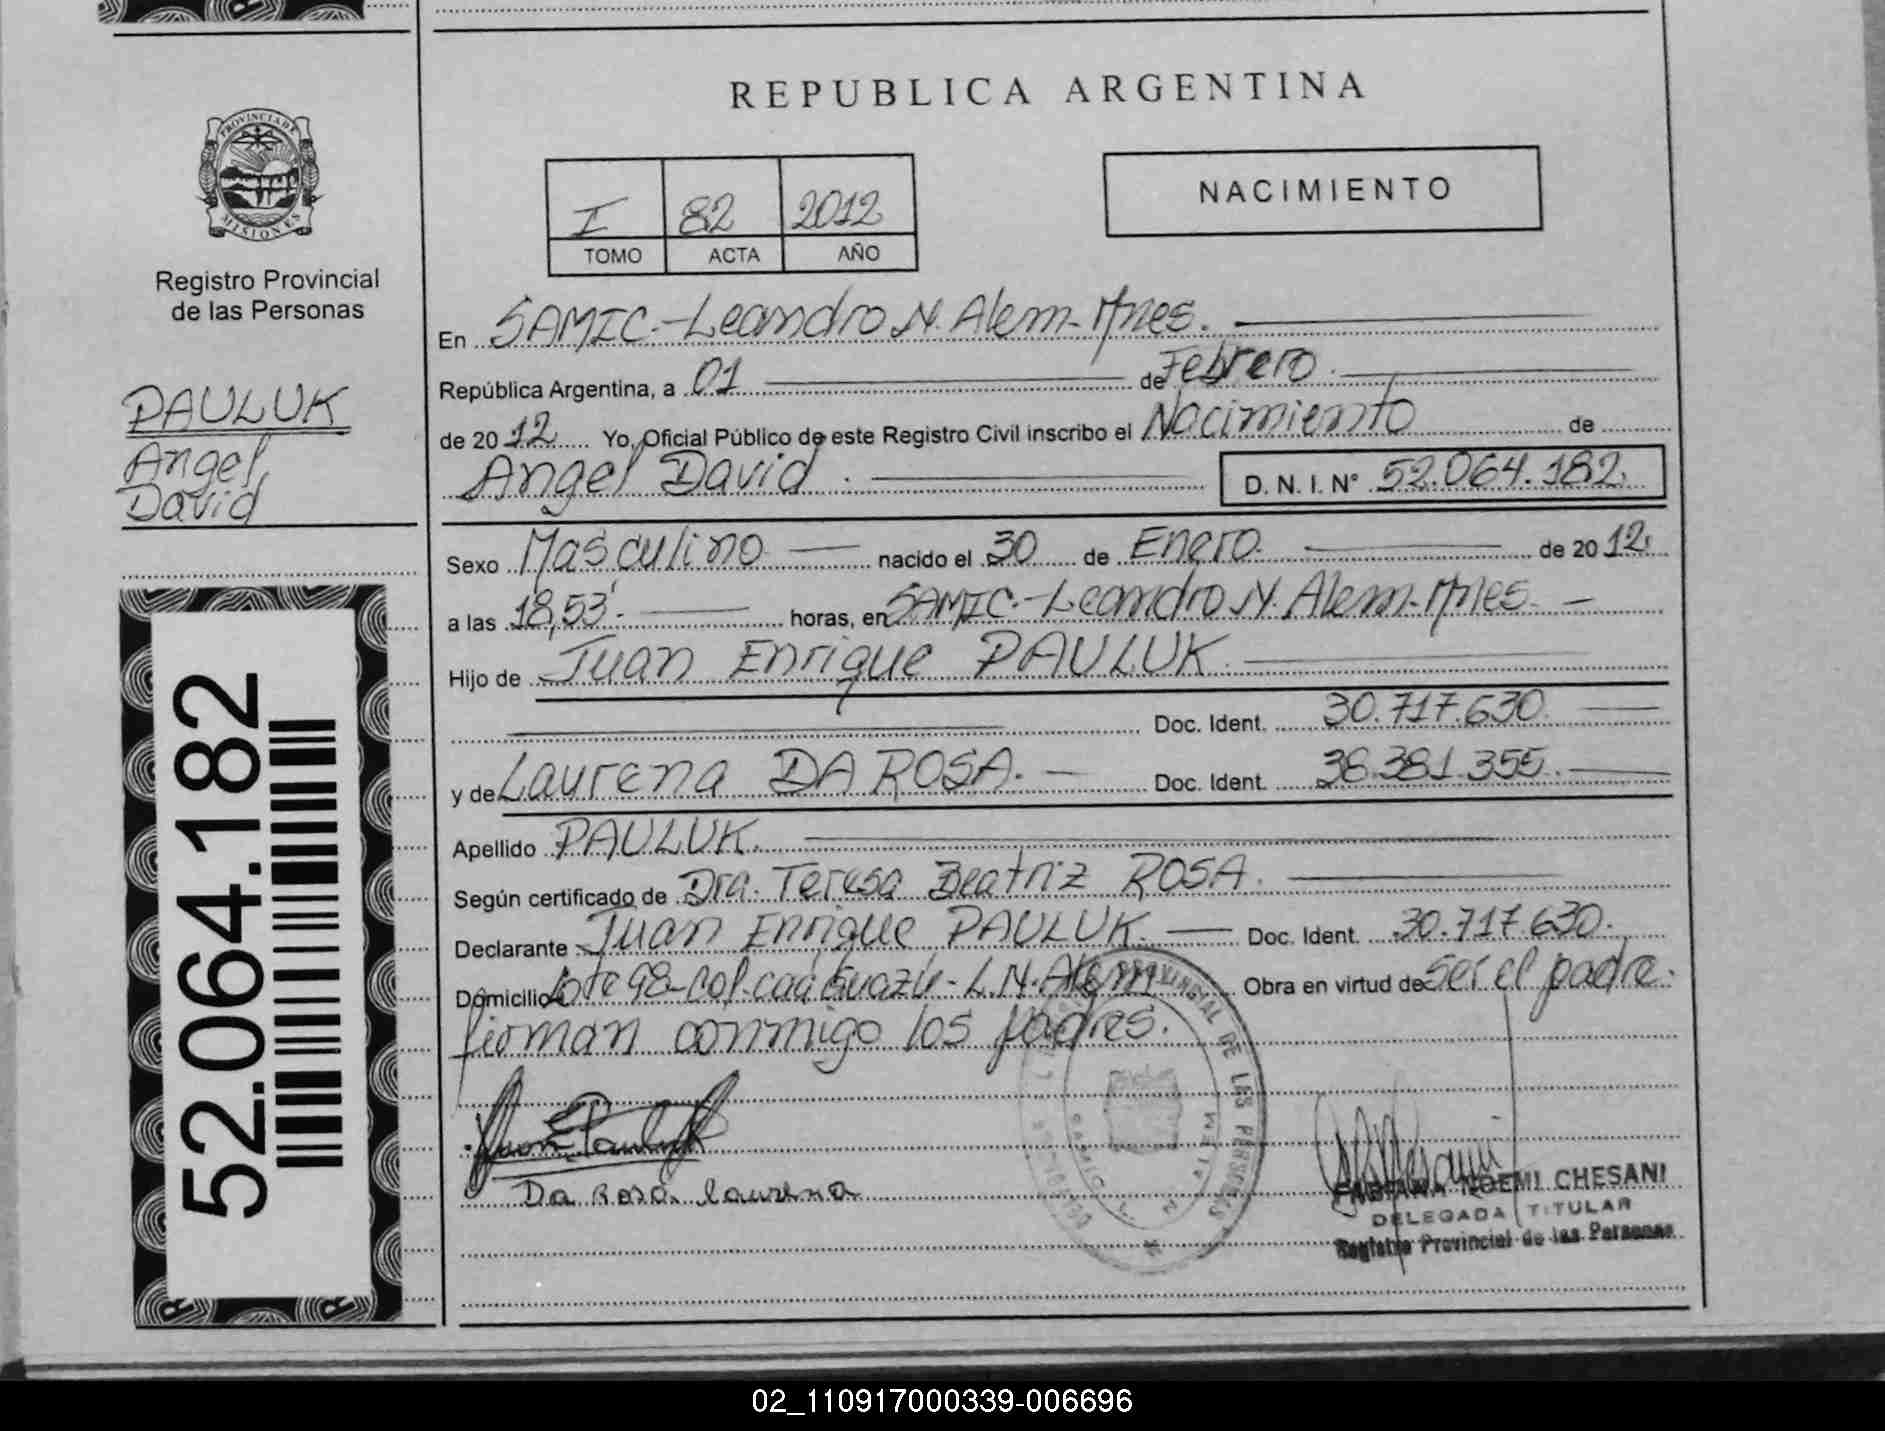 REPUBLICA ARGENTINA
PROVINCIA DE
MISIONES
Registro Provincial
de las Personas
I 82 2012
TOMO ACTA AÑO
NACIMIENTO
PAULUK
Angel
David
En SAMIC.-Leandro N. Alem-Mnes.
República Argentina, a 01 de Febrero.
de 2012 Yo, Oficial Público de este Registro Civil inscribo el Nacimiento de
Angel David. D. N. I. N° 52.064.182.
Sexo Masculino nacido el 30 de Enero. de 2012.
a las 18,53'. horas, en SAMIC.-Leandro N. Alem-Mnes.
Hijo de Juan Enrique PAULUK.
Doc. Ident. 30.717.630.
y de Laurena DA ROSA. Doc. Ident. 38.381.355.
Apellido PAULUK.
Según certificado de Dra. Teresa Beatriz ROSA.
Declarante Juan Enrique PAULUK. Doc. Ident. 30.717.630.
Domicilio Lote 98-Col. Caá Guazú-L.N. Alem Obra en virtud de ser el padre.
firman conmigo los padres.
Juan E Pauluk
Da Rosa Laurena
FABIANA NOEMI CHESANI
DELEGADA TITULAR
Registro Provincial de las Personas
52.064.182
02_110917000339-006696